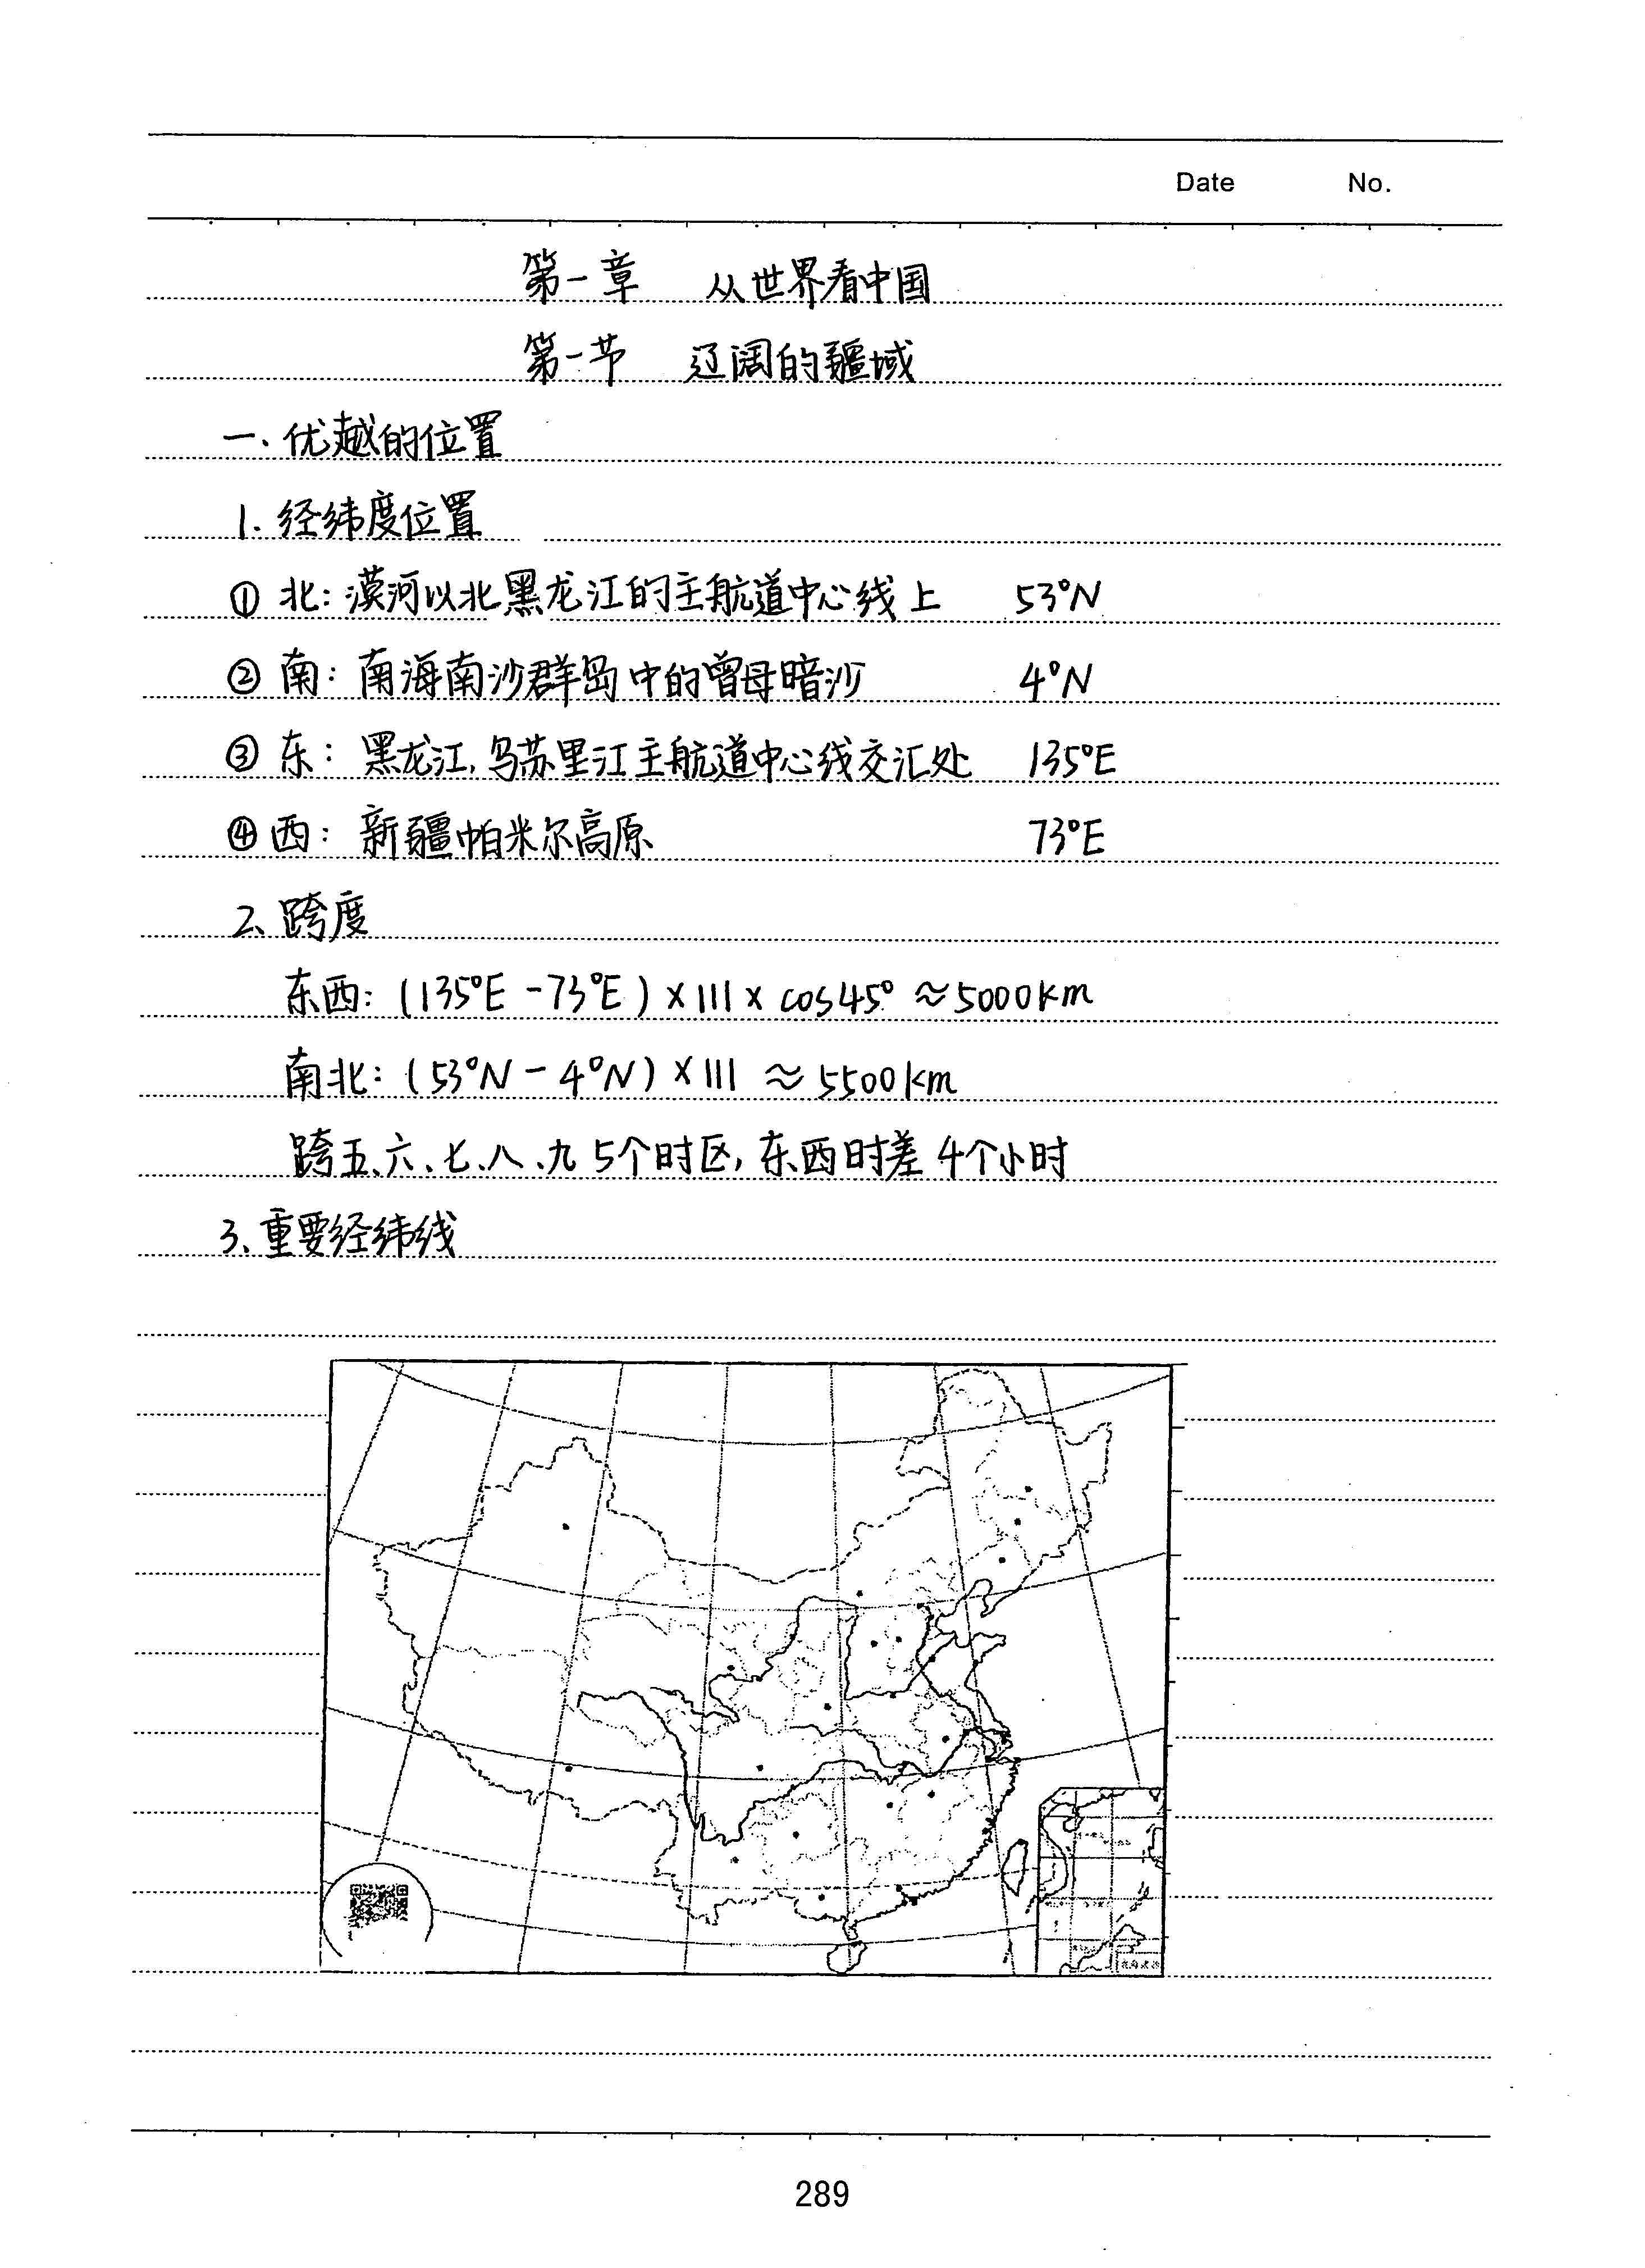 Date No.
第一章 从世界看中国
第一节 辽阔的疆域
一、优越的位置
1. 经纬度位置
① 北：漠河以北黑龙江的主航道中心线上 53°N
② 南：南海南沙群岛中的曾母暗沙 4°N
③ 东：黑龙江，乌苏里江主航道中心线交汇处 135°E
④ 西：新疆帕米尔高原 73°E
2、跨度
东西：(135°E - 73°E) × 111 × cos45° ≈ 5000km
南北：(53°N - 4°N) × 111 ≈ 5500km
跨五、六、七、八、九 5个时区，东西时差 4个小时
3、重要经纬线
289